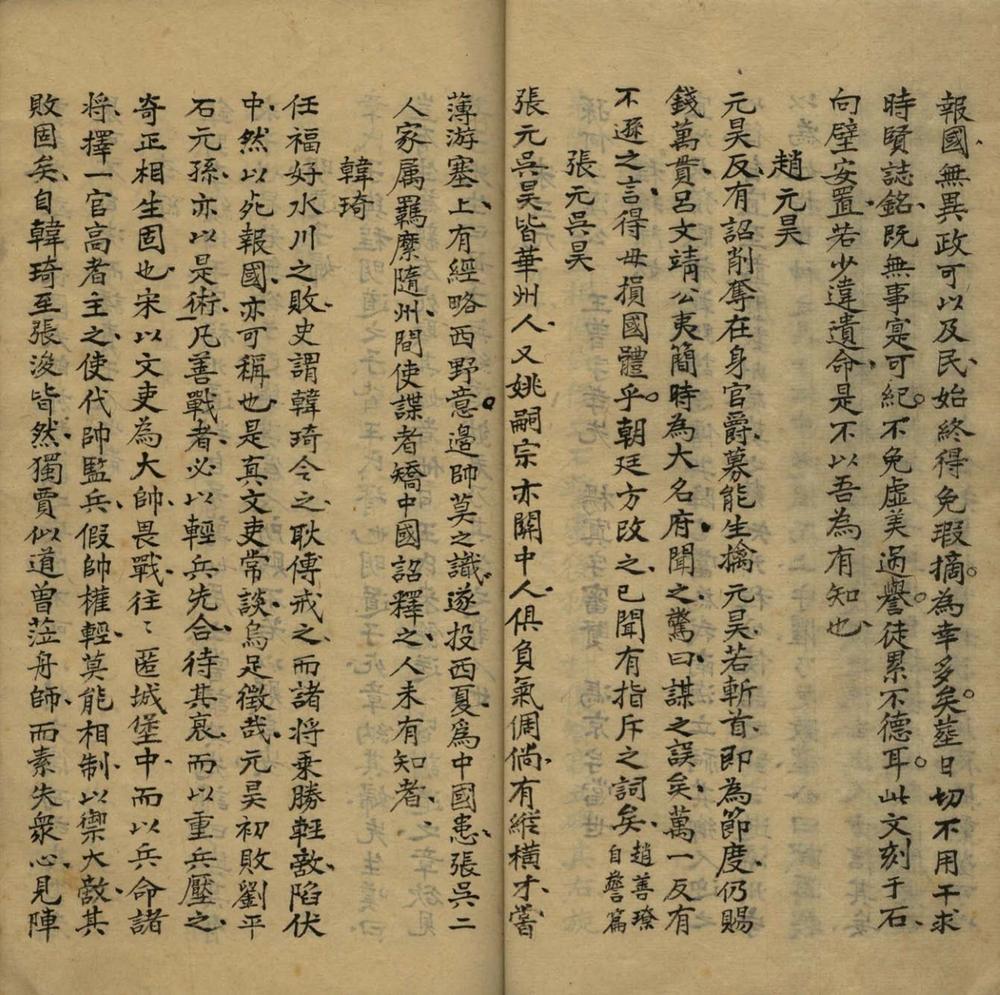 報國無異政可以及民始終得免瑕摘為幸多矣葬日切不用干求
時賢誌銘既無事寔可紀不免虛美過譽徒累不德耳此文刻于石
向壁安置若少違遺命是不以吾為有知也
趙元昊
元昊反有詔削奪在身官爵募能生擒元昊若斬首即為節度仍賜
錢萬貫呂文靖公夷簡時為大名府聞之驚曰謀之誤矣萬一反有
不遜之言得毋損國體乎朝廷方改之已聞有指斥之詞矣趙善璙自警篇
張元吳昊
張元吳昊皆華州人又姚嗣宗亦關中人俱負氣倜儻有縱橫才嘗
薄游塞上有經略西野意邊帥莫之識遂投西夏為中國患張吳二
人家属羈縻隨州間使諜者矯中國詔釋之人未有知者
韓琦
任福好水川之敗史謂韓琦令之耿傅戒之而諸将乗勝軽敵陷伏
中然以死報國亦可稱也是真文吏常談烏足徵哉元昊初敗劉平
石元孫亦以是術凡善戰者必以輕兵先合待其衰而以重兵壓之
奇正相生固也宋以文吏為大帥畏戰往〻匿城堡中而以兵命諸
将擇一官高者主之使代帥監兵假帥權輕莫能相制以禦大敵其
敗固矣自韓琦至張浚皆然獨賈似道曾蒞舟師而素失衆心見陣